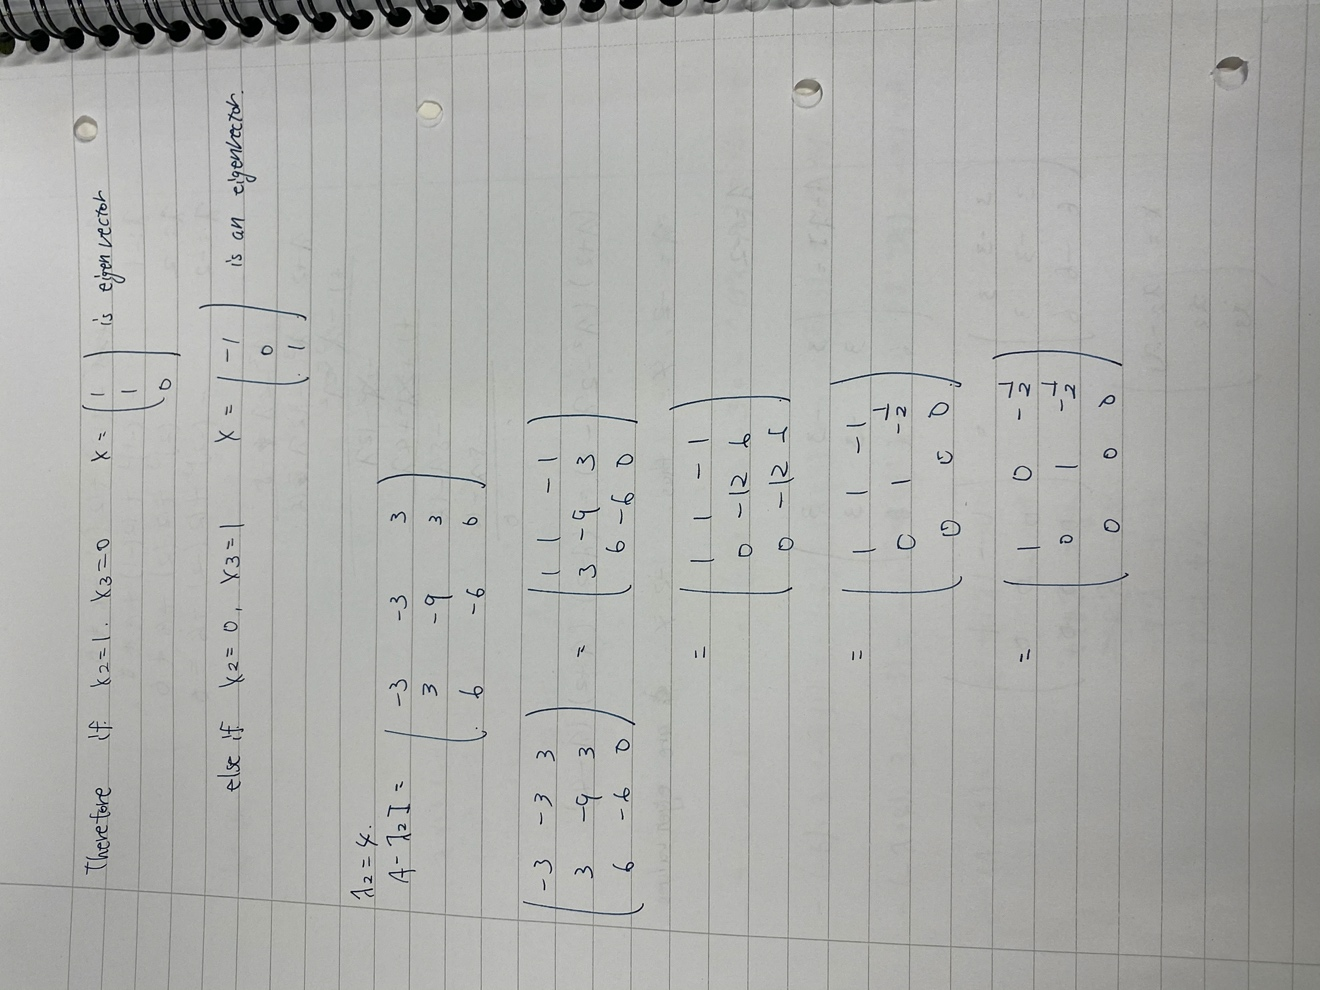 Therefore if x2=1. x3=0 x = (1 1 0) is eigenvector
else if x2=0, x3=1 x = (-1 0 1) is an eigenvector.
λ2=4.
A-λ2I = (-3 -3 3
3 -9 3
6 -6 0)
(-3 -3 3
3 -9 3
6 -6 0) = (1 1 -1
3 -9 3
6 -6 0)
= (1 1 -1
0 -12 6
0 -12 6)
= (1 1 -1
0 1 -1/2
0 0 0)
= (1 0 -1/2
0 1 -1/2
0 0 0)